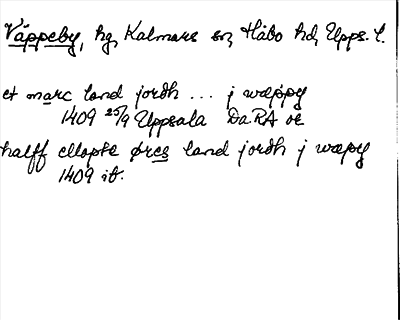 Väppeby, hg, Kalmars sn, Håbo hd, Upps. l.
et marc land jordh ... j wæppy
1409 25/9 Uppsala Da.RA or
halff ellopte øres land jordh j wæpy
1409 ib.